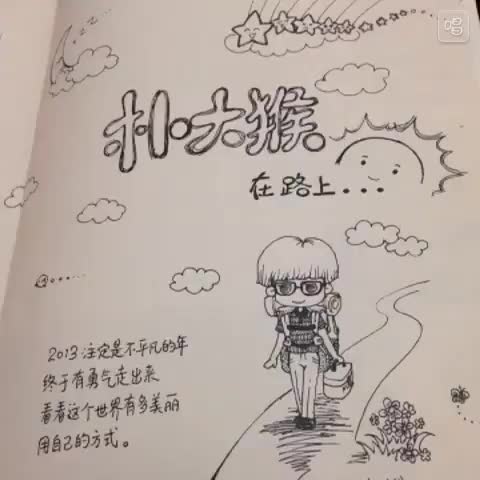 唱
朴·大猴
在路上...
2013注定是不平凡的年
终于有勇气走出来
看看这个世界有多美丽
用自己的方式。